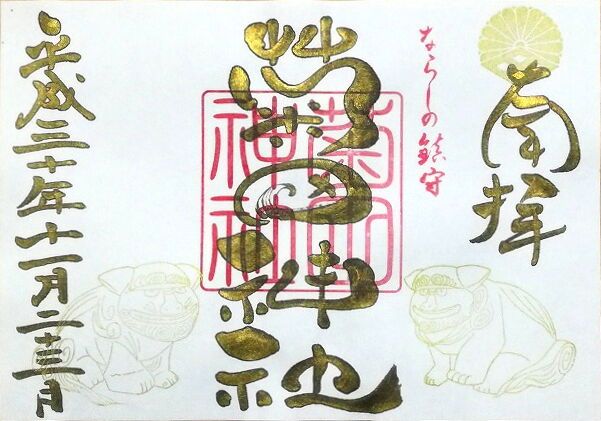 奉拝
ならしの鎮守
菊田神社
菊田神社
平成三十年十一月二十三日